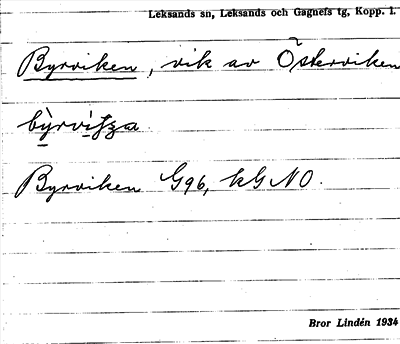 Leksands sn, Leksands och Gagnefs tg, Kopp. l.
Byrviken, vik av Österviken
Byrviken G96, kG NO.
Bror Lindén 1934